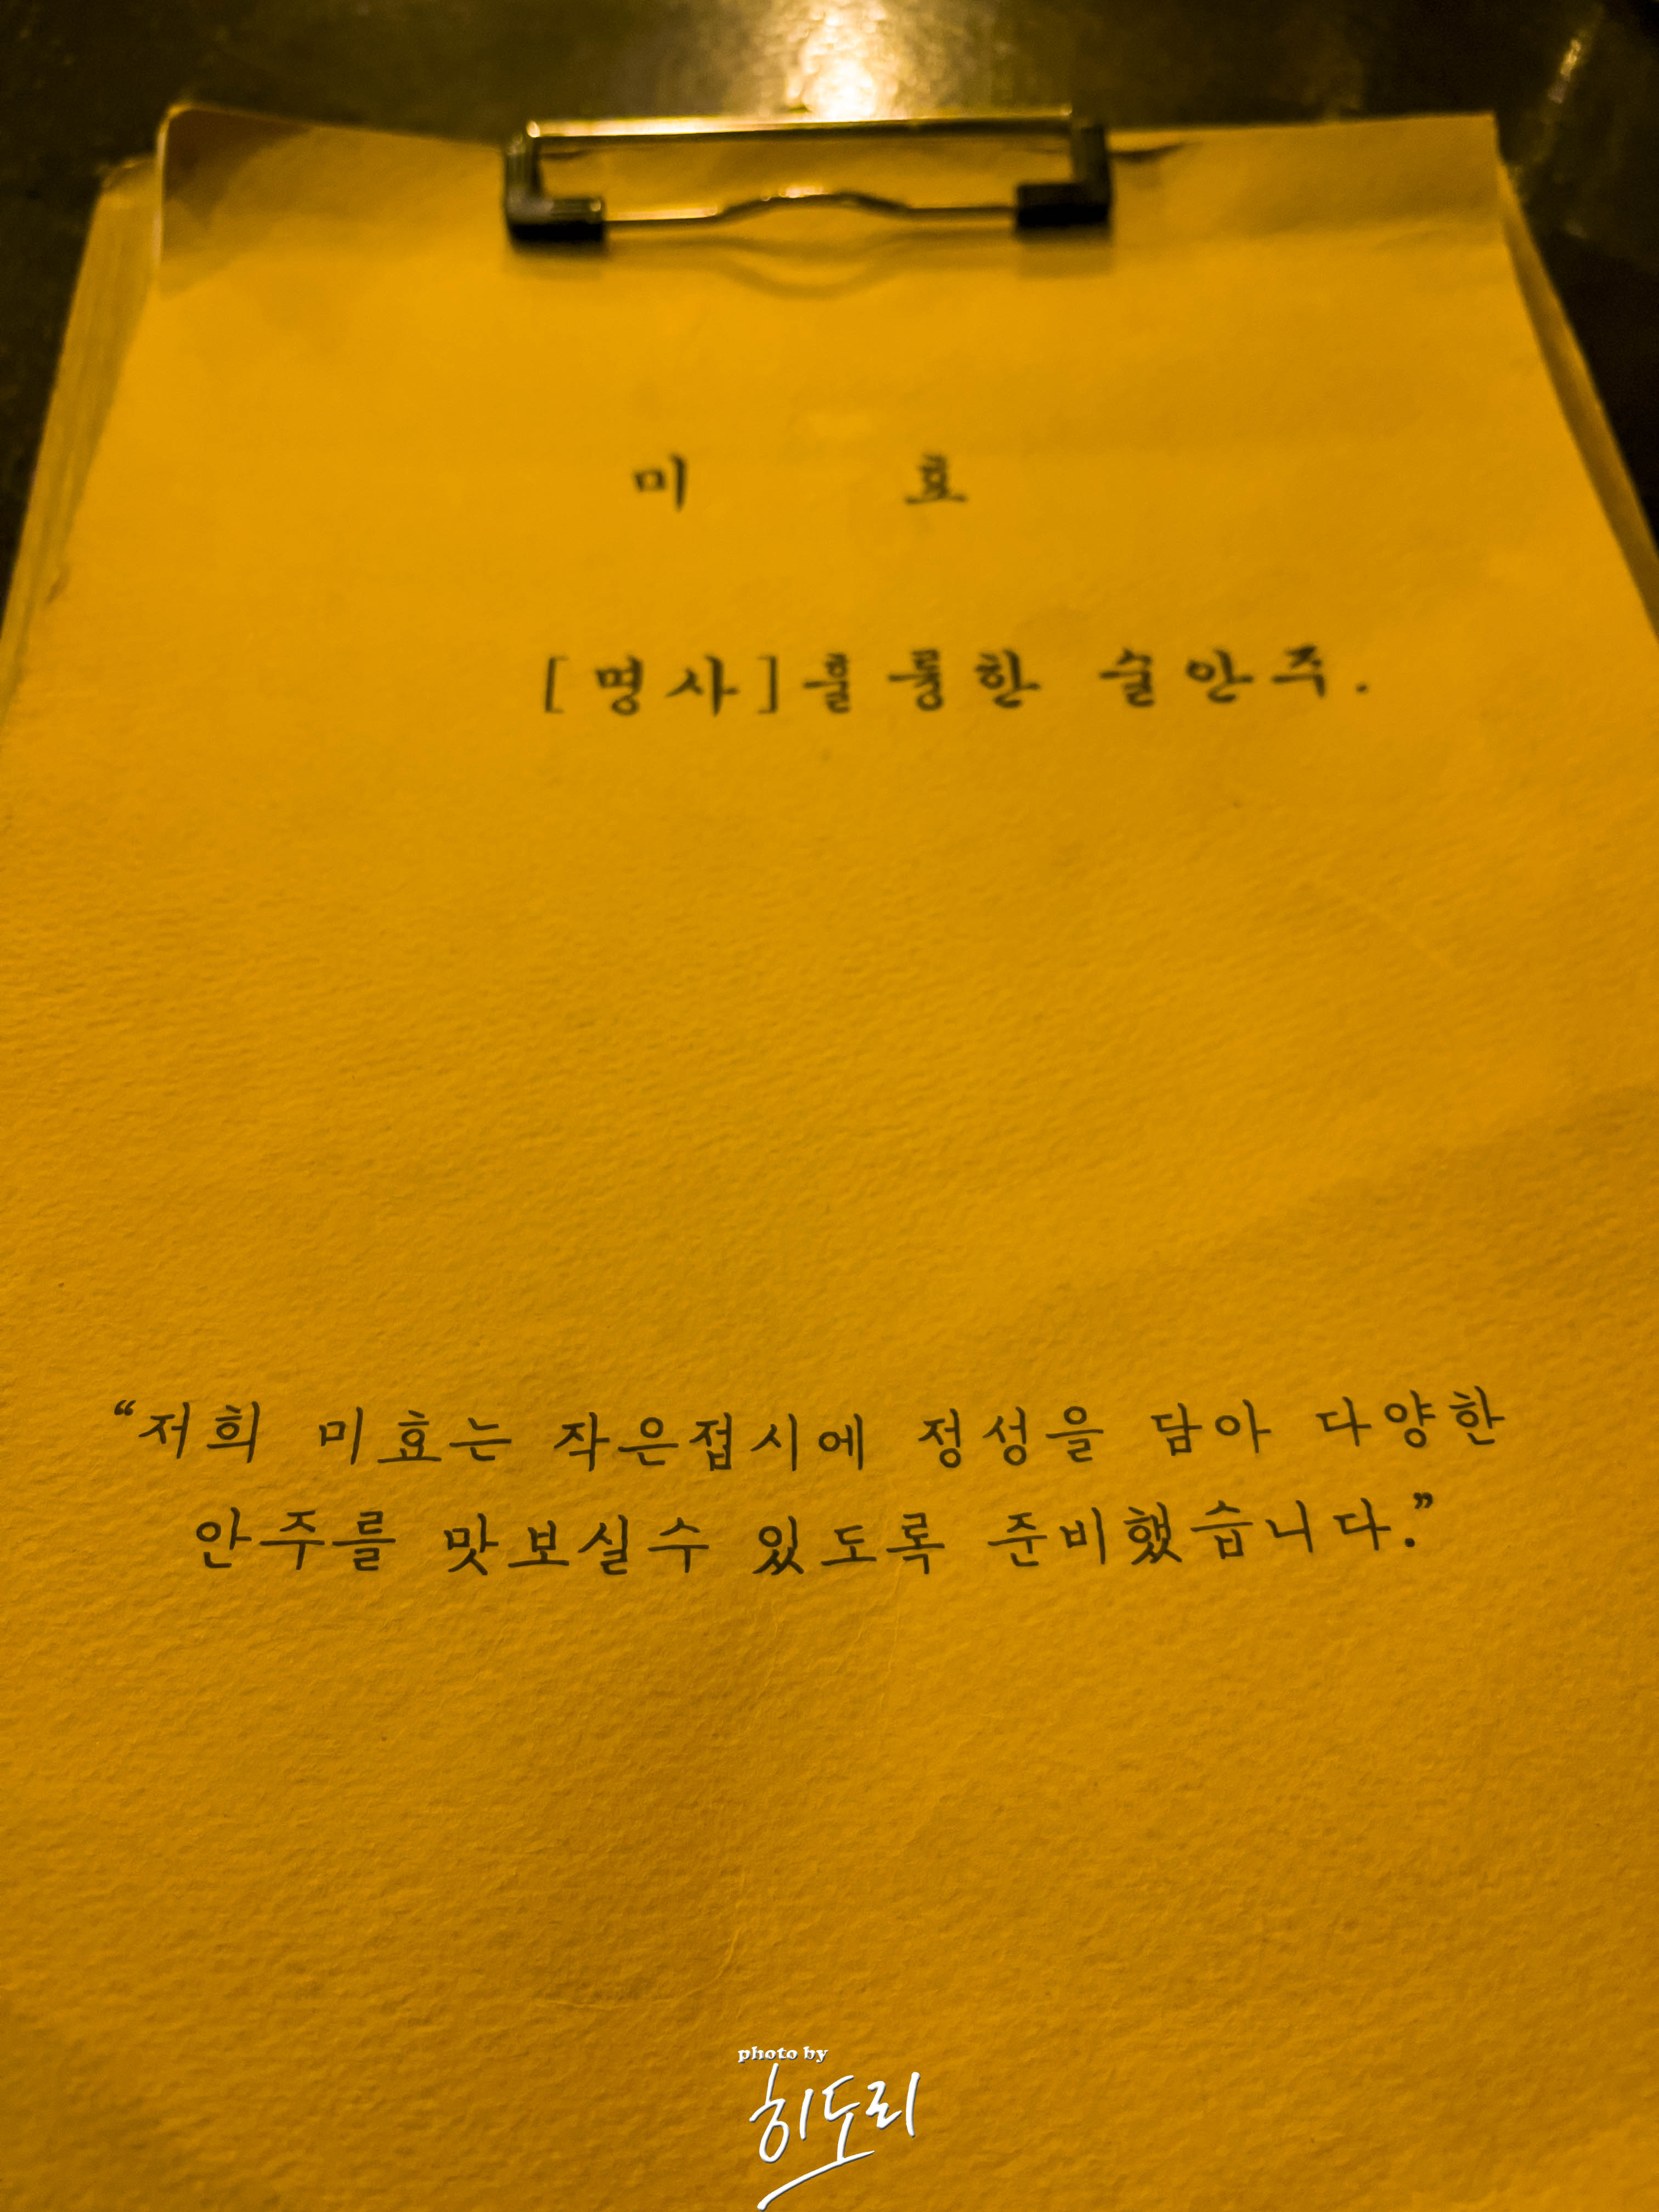 미 효
[명사]훌륭한 술안주.
“저희 미효는 작은접시에 정성을 담아 다양한
안주를 맛보실수 있도록 준비했습니다.”
photo by
히도리